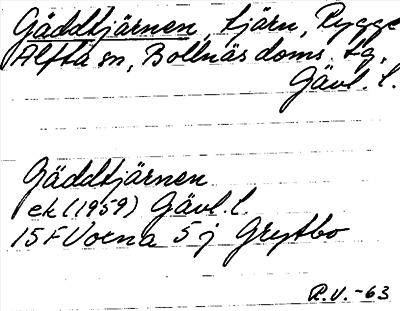 Gäddtjärnen, tjärn, Rygge
Alfta sn, Bollnäs doms. tg,
Gävl. l.
Gäddtjärnen
ek (1959) Gävl. l.
15F Voxna 5 j Grytbo
R.V. -63